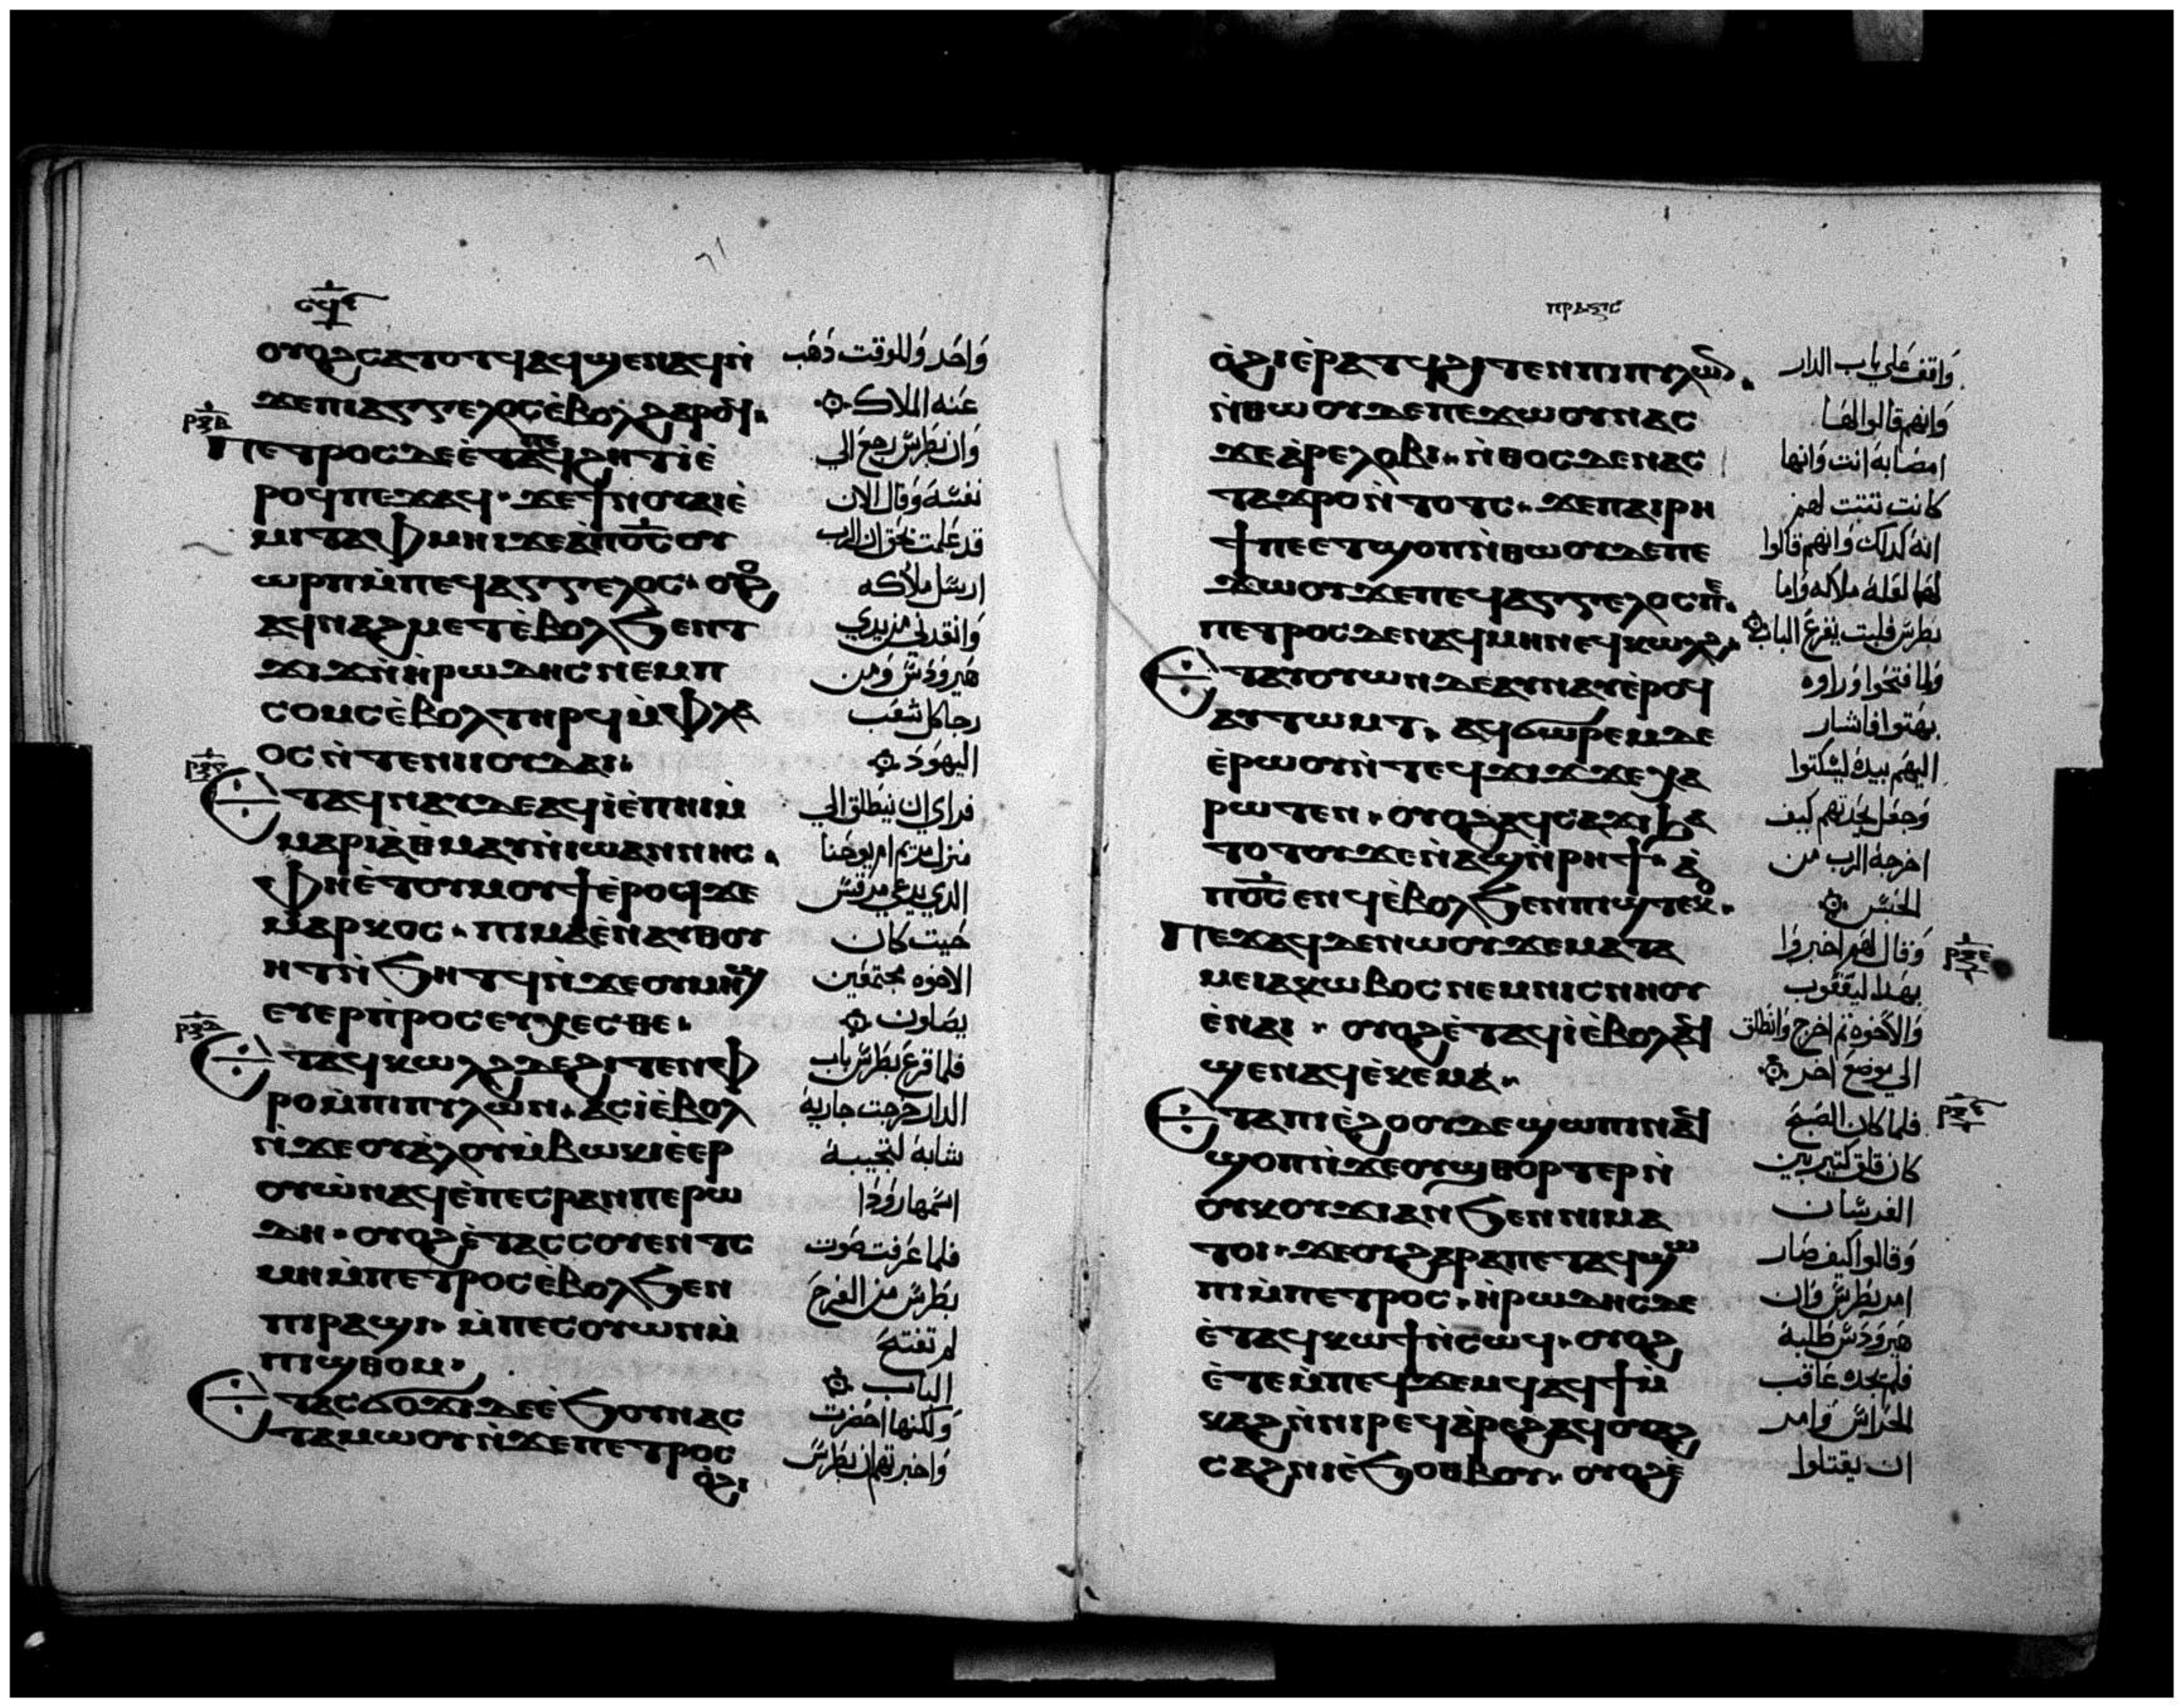 ⲥϥⲋ
ⲟⲩⲟϩⲥⲁⲧⲟⲧϥⲁϥϣⲉⲛⲁϥⲛ̀
ϫⲉⲡⲓⲁⲅⲅⲉⲗⲟⲥⲉ̀ⲃⲟⲗϩⲁⲣⲟϥ
ⲡⲉⲧⲣⲟⲥⲇⲉⲉ̀ⲧⲁⲡⲉϥϩⲏⲧⲓ̀ⲉ̀
ⲣⲟϥⲡⲉϫⲁϥ · ϫⲉϯⲛⲟⲩⲁⲓⲉ̀
ⲙⲓⲧⲁⲫⲙⲏⲓϫⲉⲁ̀ⲡⲟ̅ⲥ̅ⲟⲩ
ⲱⲣⲡⲙ̀ⲡⲉϥⲁⲅⲅⲉⲗⲟⲥ · ⲟⲩⲟϩ
ⲁϥⲛⲁϩⲙⲉⲧⲉ̀ⲃⲟⲗϧⲉⲛⲧ
ϫⲓϫⲛ̀ⲏ̀ⲣⲱⲇⲏⲥⲛⲉⲙⲡ
ⲥⲟⲙⲥⲉ̀ⲃⲟⲗⲧⲏⲣϥⲙ̀ⲫⲗⲁ
ⲟⲥⲛ̀ⲧⲉⲛⲓⲓⲟⲩⲇⲁⲓ
ⲉⲧⲁϥⲛⲁⲩⲇⲉⲁϥⲓ̀ⲉ̀ⲡⲏⲓⲙ̀
ⲙⲁⲣⲓⲁ̀ⲑ̀ⲙⲁⲩⲛ̀ⲓⲱⲁⲛⲛⲏⲥ
ⲫⲏⲉ̀ⲧⲟⲩⲙⲟⲩϯⲉ̀ⲣⲟϥϫⲉ
ⲙⲁⲣⲕⲟⲥ · ⲡⲓⲙⲁⲉ̀ⲛⲁⲩⲑⲟⲩ
ⲏⲧⲛ̀ϧⲏⲧϥⲛ̀ϫⲉⲟⲩⲙⲏϣ
ⲉⲩⲉⲣⲡ̀ⲣⲟⲥⲉⲩⲭⲉⲥⲑⲉ
ⲉⲧⲁϥⲕⲱⲗϩⲇⲉϩⲓⲧⲉⲛⲫ
ⲣⲟⲙ̀ⲡⲓⲡⲩⲗⲱⲛ · ⲁⲥⲓ̀ⲉ̀ⲃⲟⲗ
ⲛ̀ϫⲉⲟⲩⲁ̀ⲗⲟⲩⲙ̀ⲃⲱⲕⲓⲉ̀ⲉⲣ
ⲟⲩⲱ̀ⲛⲁϥⲉ̀ⲡⲉⲥⲣⲁⲛⲡⲉⲣⲱ
ⲇⲏ · ⲟⲩⲟϩⲉ̀ⲧⲁⲥⲥⲟⲩⲉⲛⲧⲥ
ⲙⲏⲙ̀ⲡⲉⲧⲣⲟⲥⲉ̀ⲃⲟⲗϧⲉⲛ
ⲡⲓⲣⲁϣⲓ · ⲙ̀ⲡⲉⲥⲟⲩⲱⲛⲙ̀
ⲡⲓϣⲑⲟⲙ
ⲉⲧⲁⲥϭⲟϫⲓⲇⲉⲉ̀ϧⲟⲩⲛⲁⲥ
ⲧⲁⲙⲱⲟⲩⲛ̀ϫⲉⲡⲉⲧⲣⲟⲥ
ⲟ̀ϩⲓ
ⲣⲝⲃ
ⲣⲝⲅ
ⲣⲝⲇ
واحد وللوقت ذهب
عنه الملاك
وان بطرس رجع الي
نفسه وقال الان
قد علمت بحق ان الرب
ارسل ملاكه
وانقدني من يدي
هيرودس ومن
رجا كل شعب
اليهود
فراي ان ينطلق الي
منزل مريم ام يوحنا
الدي يدعي مرقس
حيث كان
الاخوه مجتمعين
يصلون
فلما قرع بطرس باب
الدار خرجت جاريه
شابه لتجيبه
اسمها رودا
فلما عرفت صوت
بطرس من الفرح
لم تفتح
الباب
ولكنها احضرت
واخبرتهم ان بطرس
ⲡⲣⲁⲝⲓⲥ
ⲟ̀ϩⲓⲉ̀ⲣⲁⲧϥϩⲓⲧⲉⲛⲡⲓⲡⲩⲗⲱⲛ
ⲛ̀ⲑⲱⲟⲩⲇⲉⲡⲉϫⲱⲟⲩⲛⲁⲥ
ϫⲉⲁ̀ⲣⲉⲗⲟⲃⲓ · ⲛ̀ⲑⲟⲥⲇⲉⲛⲁⲥ
ⲧⲁϫⲣⲟⲛ̀ⲧⲟⲧⲥ · ϫⲉⲡⲁⲓⲣⲏ
ϯⲡⲉⲉⲧϣⲟⲡⲛ̀ⲑⲱⲟⲩⲇⲉⲡⲉ
ϫⲱⲟⲩϫⲉⲡⲉϥⲁⲅⲅⲉⲗⲟⲥⲡⲉ
ⲡⲉⲧⲣⲟⲥⲇⲉⲛⲁϥⲙⲏⲛⲉϥⲕⲱⲗϩ
ⲉⲧⲁⲩⲟⲩⲱⲛⲇⲉⲁⲩⲛⲁⲩⲉ̀ⲣⲟϥ
ⲁⲩⲧⲱⲙⲧ · ⲁϥϭⲱⲣⲉⲙⲇⲉ
ⲉ̀ⲣⲱⲟⲩⲛ̀ⲧⲉϥϫⲓϫϫⲉⲭⲁ
ⲣⲱⲧⲉⲛ · ⲟⲩⲟϩⲁϥⲥⲁϫⲓϧⲁ
ⲧⲟⲧⲟⲩϫⲉⲛ̀ⲁϣⲛ̀ⲣⲏϯ · ⲁ̀
ⲡⲟ̅ⲥ̅ⲉⲛϥⲉ̀ⲃⲟⲗϧⲉⲛⲡⲓϣⲧⲉⲕⲟ
ⲡⲉϫⲁϥⲇⲉⲛⲱⲟⲩϫⲉⲙⲁⲧⲁ
ⲙⲉⲓⲁⲕⲱⲃⲟⲥⲛⲉⲙⲛⲓⲥⲛⲏⲟⲩ
ⲉ̀ⲛⲁⲓ · ⲟⲩⲟϩⲉ̀ⲧⲁϥⲓ̀ⲉ̀ⲃⲟⲗⲁϥ
ϣⲉⲛⲁϥⲉ̀ⲕⲉⲙⲁ
ⲉⲧⲁⲡⲓⲉ̀ϩⲟⲟⲩⲇⲉϣⲱⲡⲓⲛⲁϥ
ϣⲟⲡⲛ̀ϫⲉⲟⲩϣⲑⲟⲣⲧⲉⲣⲛ̀
ⲟⲩⲕⲟⲩϫⲓⲁⲛϧⲉⲛⲛⲓⲙⲁ
ⲧⲟⲓ · ϫⲉⲟⲩϩⲁⲣⲁⲡⲉⲧⲁϥϣⲱ
ⲡⲓⲙ̀ⲡⲉⲧⲣⲟⲥ · ⲏ̀ⲣⲱⲇⲏⲥⲇⲉ
ⲉ̀ⲧⲁϥⲕⲱϯⲛ̀ⲥⲱϥ · ⲟⲩⲟϩ
ⲉ̀ⲧⲉⲙ̀ⲡⲉϥϫⲉⲙϥⲁϥϯⲙ̀
ⲕⲁϩⲛ̀ⲛⲓⲣⲉϥⲁ̀ⲣⲉϩⲁϥⲟⲩⲁϩ
ⲥⲁϩⲛⲓⲉ̀ϧⲟⲑⲃⲟⲩ · ⲟⲩⲟϩⲉ̀
واقف علي باب الدار
وانهم قالوا لها
امصابه انت وانها
كانت تتبت لهم
انه كدلك وانهم قالوا
لها لعله ملاكه واما
بطرس فلبت يقرع الباب
ولما فتحوا وراوه
بهتوا فاشار
اليهم بيده ليسكتوا
وجعل يحدثهم كيف
اخرجه الرب من
الحبس
وقال لهم اخبروا
بهدا ليعقوب
والاخوه ثم اخرج وانطلق
الي موضع اخر
فلما كان الصبح
كان قلق كتير بين
الفرسان
وقالوا كيف صار
امر بطرس وان
هيرودس طلبه
فلم يجده عاقب
الحراس وامر
ان يقتلوا
ⲣⲝⲉ
ⲣⲝⲋ